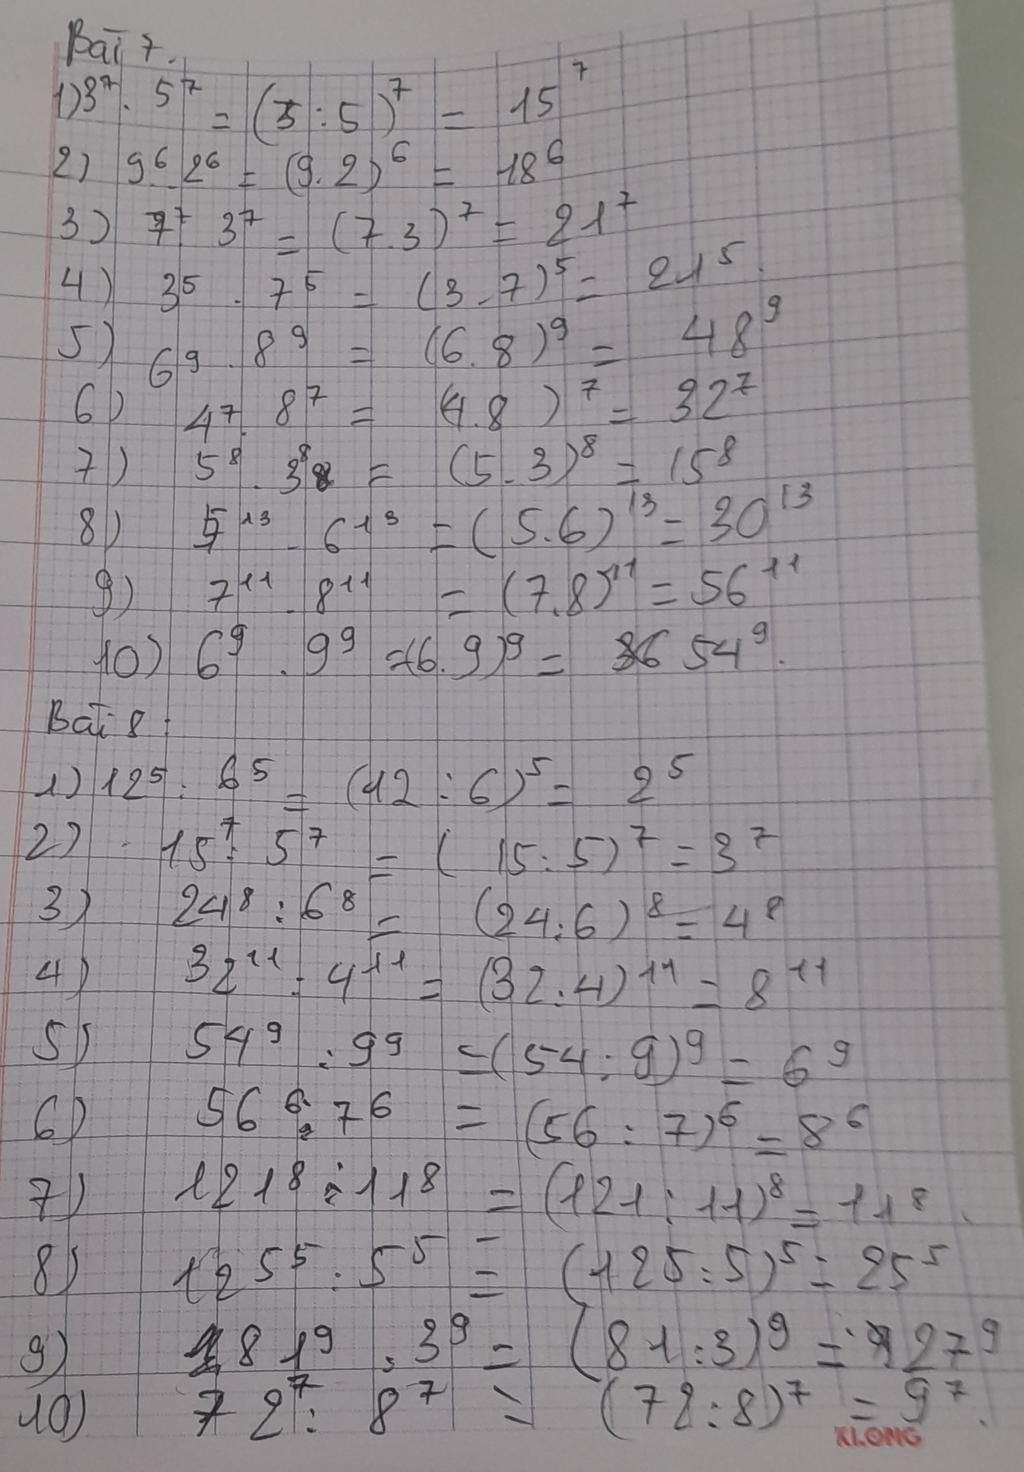 Bài 7.
1) 3⁷ . 5⁷ = (3 : 5)⁷ = 15⁷
2) 9⁶ . 2⁶ = (9.2)⁶ = 18⁶
3) 7⁷ 3⁷ = (7.3)⁷ = 21⁷
4) 3⁵ . 7⁵ = (3.7)⁵ = 21⁵.
5) 6⁹ . 8⁹ = (6.8)⁹ = 48⁹
6) 4⁷ . 8⁷ = (4.8)⁷ = 32⁷
7) 5⁸ . 3⁸ = (5.3)⁸ = 15⁸
8) 5¹³ . 6¹³ = (5.6)¹³ = 30¹³
9) 7¹¹ . 8¹¹ = (7.8)¹¹ = 56¹¹
10) 6⁹ . 9⁹ = (6.9)⁹ = 54⁹.
Bài 8:
1) 12⁵ : 6⁵ = (12 : 6)⁵ = 2⁵
2) 15⁷ : 5⁷ = (15:5)⁷ = 3⁷
3) 24⁸ : 6⁸ = (24:6)⁸ = 4⁸
4) 32¹¹ : 4¹¹ = (32:4)¹¹ = 8¹¹
5) 54⁹ : 9⁹ = (54:9)⁹ = 6⁹
6) 56⁶ : 7⁶ = (56 : 7)⁶ = 8⁶
7) 121⁸ : 11⁸ = (121 : 11)⁸ = 11⁸.
8) 125⁵ : 5⁵ = (125:5)⁵ = 25⁵
9) 81⁹ : 3⁹ = (81:3)⁹ = 27⁹
10) 72⁷ : 8⁷ = (72:8)⁷ = 9⁷.
KLONG